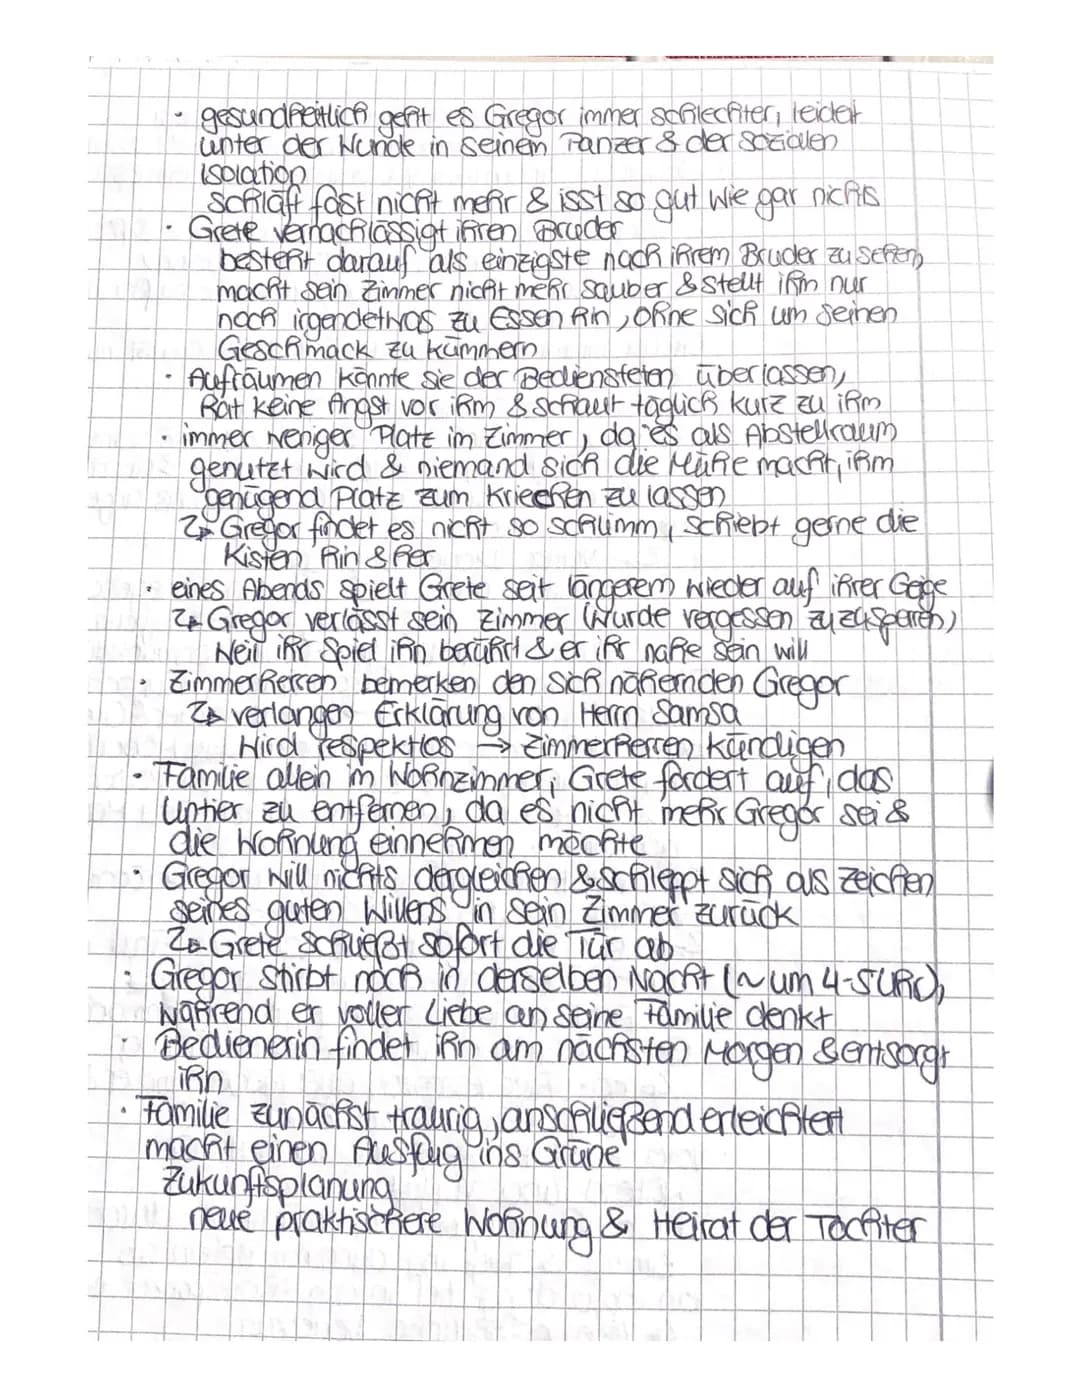 · gesundheitlich geht es Gregor immer schlechter, leidet
unter der Wunde in seinem Panzer & der sozialen
Isolation
schläft fast nicht mehr & isst so gut wie gar nichts
· Grete vernachlässigt ihren Bruder
besteht darauf als einzigste nach ihrem Bruder zu sehen,
macht sein Zimmer nicht mehr sauber & stellt ihm nur
noch irgendetwas zu Essen hin, ohne sich um seinen
Geschmack zu kümmern
· Aufräumen könnte sie der Bediensteten überlassen,
hat keine Angst vor ihm & schaut täglich kurz zu ihm
· immer weniger Platz im Zimmer, da es als Abstellraum
genutzt wird & niemand sich die Mühe macht, ihm
genügend Platz zum Kriechen zu lassen
↳ Gregor findet es nicht so schlimm, schiebt gerne die
Kisten hin & her
· eines Abends spielt Grete seit längerem wieder auf ihrer Geige
↳ Gregor verlässt sein Zimmer (wurde vergessen zuzusperren)
weil ihr Spiel ihn berührt & er ihr nahe sein will
· Zimmerherren bemerken den sich nähernden Gregor
↳ verlangen Erklärung von Herrn Samsa
wird respektlos → Zimmerherren kündigen
· Familie allein im Wohnzimmer; Grete fordert auf, das
Untier zu entfernen, da es nicht mehr Gregor sei &
die Wohnung einnehmen möchte
· Gregor will nichts dergleichen & schleppt sich als Zeichen
seines guten Willens in sein Zimmer zurück
↳ Grete schließt sofort die Tür ab
· Gregor stirbt noch in derselben Nacht (~um 4-5 Uhr),
während er voller Liebe an seine Familie denkt
· Bedienerin findet ihn am nächsten Morgen & entsorgt
ihn
· Familie zunächst traurig, anschließend erleichtert
macht einen Ausflug ins Grüne
Zukunftsplanung
neue praktischere Wohnung & Heirat der Tochter